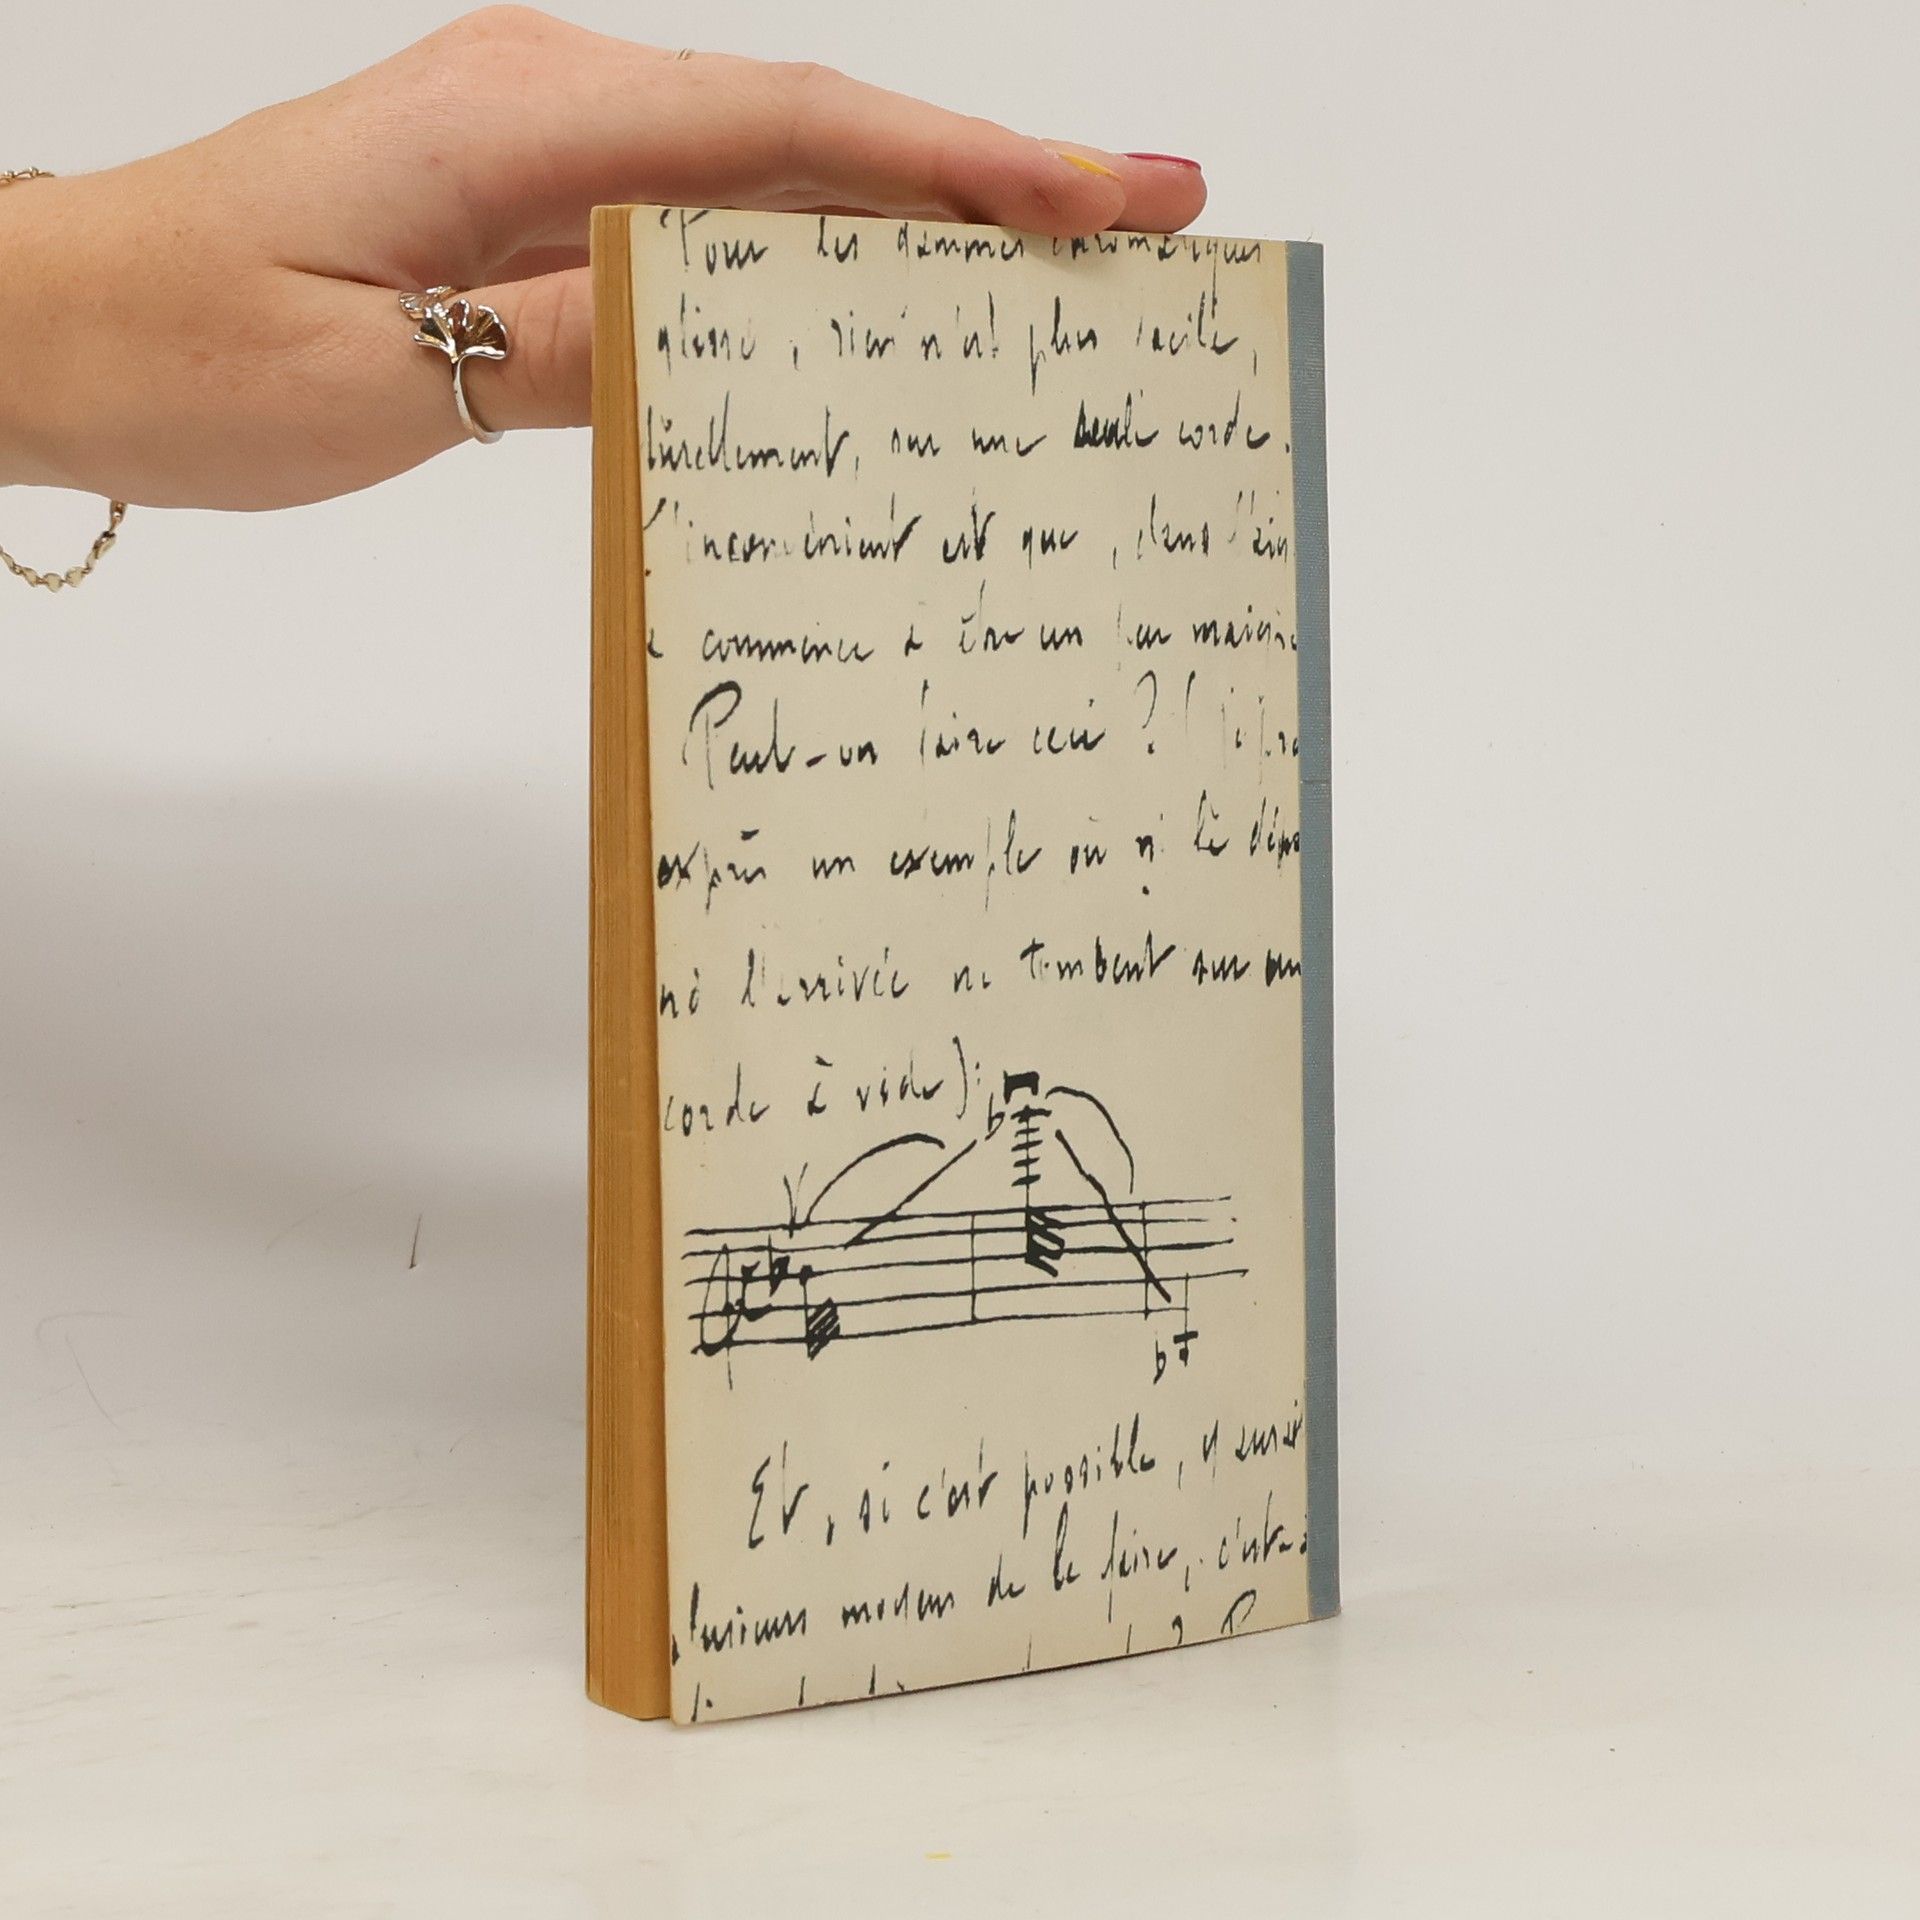 Pour les gammes chromatiques
glissé, rien n'est plus facile,
turellement, sur une seule corde.
L'inconvénient est que, dans l'aig
commence à être un peu maigre
Peut-on faire ceci ? ( je pre
exprès un exemple où ni le dépa
ni l'arrivée ne tombent sur un
corde à vide):
Et, si c'est possible, y aurait
plusieurs moyens de le faire, c'est-à